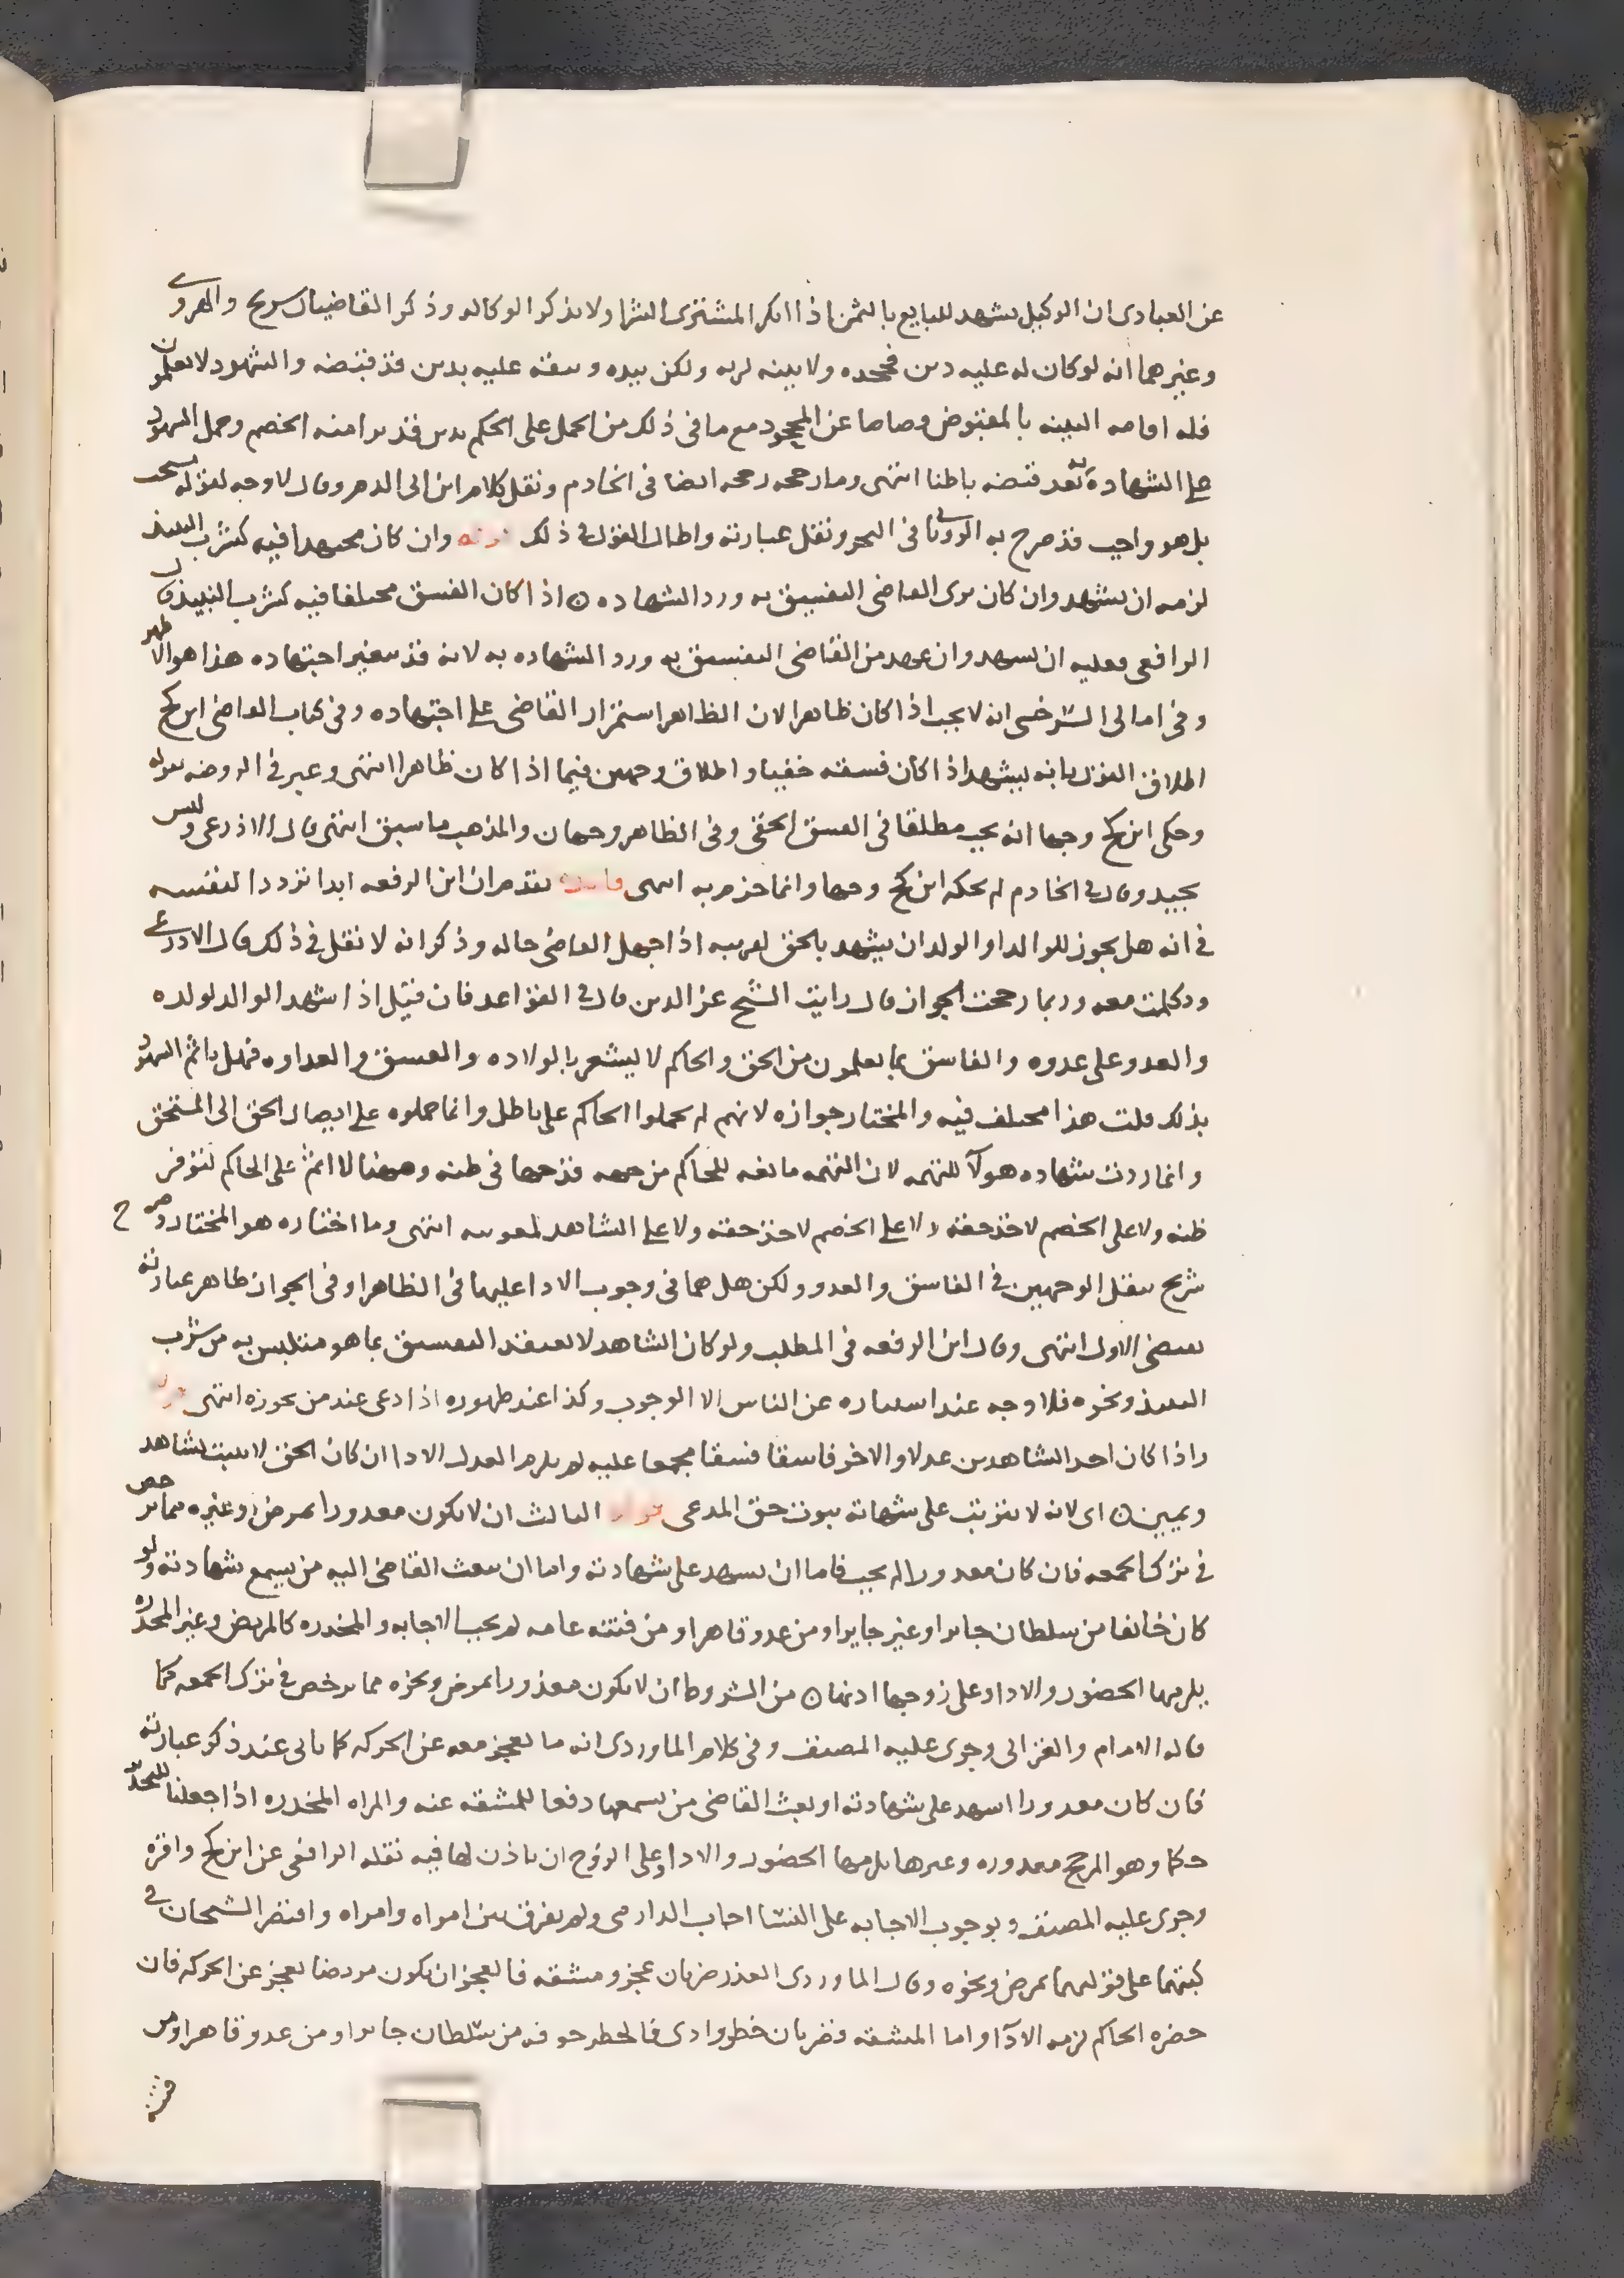 عن العبادى ان الوكيل يشهد للبايع بالثمن اذا انكر المشترى الشرا ولا يذكر الوكاله وذكر القاضيان شريح والهروى
وغيرهما انه لو كان له عليه دين فجحده ولا بينه لربه ولكن بيده وثيقه عليه بدين قد قبضه والشهود لا يعلمون
فله اقامه البينه بالمقبوض وصاصا عن المجحود مع ما فى ذلك من الحمل على الحكم بدين قد برا منه الخصم وحمل الشهود
على الشهادة به بعد قبضه باطنا انتهى وما رجحه رجحه ايضا فى الخادم ونقل كلام ابن ابى الدم وقال لا وجه لقوله يستحب
بل هو واجب قد صرح به الرويانى فى البحر ونقل عبارته واطال القول فى ذلك قوله وان كان مجتهدا فيه كشرب النبيذ
لزمه ان يشهد وان كان يرى القاضى التفسيق به ورد الشهاده ن اذا كان الفسق مختلفا فيه كشرب النبيذ قال
الرافعى فعليه ان يشهد وان عهد من القاضى التفسيق به ورد الشهاده به لانه قد يتغير اجتهاده هذا هو الاظهر
وفى امالى السرخسى انه لا يجب اذا كان ظاهرا لان الظاهر استمرار القاضى على اجتهاده وفى كتاب القاضى ابن كج
اطلاق القول بانه يشهد اذا كان فسقه خفيا واطلاق وجهين فيما اذا كان ظاهرا انتهى وعبر فى الروضه بقوله
وحكى ابن كج وجها انه يجب مطلقا فى الفسق الخفى وفى الظاهر وجهان والمذهب ما سبق انتهى قال الاذرعى وليس
بجيد وقال فى الخادم لم يحكه ابن كج وجها وانما جزم به انتهى فايده تقدم ان ابن الرفعه ابدا ترددا لنفسه
فى انه هل يجوز للوالد او الولد ان يشهد بالحق لقريبه اذا جهل القاضى حاله وذكر انه لا نقل فى ذلك قال الاذرعى
وتكلمت معه وربما رجحت الجواز قال رايت الشيخ عز الدين قال فى القواعد فان قيل اذا شهد الوالد لولده
والعدو على عدوه والفاسق بما يعلمون من الحق والحاكم لا يشعر بالولاده والفسق والعداوه فهل ياثم الشهود
بذلك قلت هذا مختلف فيه والمختار جوازه لانهم لم يحملوا الحاكم على باطل وانما حملوه على ايصال الحق الى المستحق
وانما ردت شهاده هولآ للتهمه لان التهمه مانعه للحاكم من جهه قدحها فى ظنه وههنا لا اثم على الحاكم لتوفر
ظنه ولا على الخصم لاخذ حقه ولا على الخصم لاخذ حقه ولا على الشاهد لمعونته انتهى وما اختاره هو المختار وصرح
شريح بنقل الوجهين فى الفاسق والعدو ولكن هل هما فى وجوب الادا عليهما فى الظاهر او فى الجواز ظاهر عبارته
يقتضى الاول انتهى وقال ابن الرفعه فى المطلب ولو كان الشاهد لا يعتقد التفسيق بما هو متلبس به من شرب
النبيذ ونحوه فلا وجه عند استتاره عن الناس الا الوجوب وكذا عند ظهوره اذا دعى عند من يجوزه انتهى قوله
واذا كان احد الشاهدين عدلا والاخر فاسقا فسقا مجمعا عليه لم يلزم العدل الادا ان كان الحق لا يثبت بشاهد
ويمين ن اى لانه لا يترتب على شهاته ثبوت حق المدعى قوله الثالث ان لا يكون معذورا بمرض وغيره مما يرخص
فى ترك الجمعه فان كان معذورا لم يجب فاما ان يشهد على شهادته واما ان يبعث القاضى اليه من يسمع شهادته ولو
كان خائفا من سلطان جاير او غير جاير او من عدو قاهر او من فتنه عامه لم يجب الاجابه والمخدره كالمريض وغير المخدره
يلزمها الحضور والادا وعلى زوجها اذنها ن من الشروط ان لا يكون معذورا بمرض ونحوه مما يرخص فى ترك الجمعه كما
قاله الامام والغزالى وجرى عليه المصنف وفى كلام الماوردى انه ما يعجز معه عن الحركه كما ياتى عند ذكر عبارته
فان كان معذورا اشهد على شهادته او بعث القاضى من يسمعها دفعا للمشقه عنه والمراه المخدره اذا جعلنا للتخدر
حكما وهو المرجح معذوره وغيرها يلزمها الحضور والادا وعلى الزوج ان ياذن لها فيه نقله الرافعى عن ابن كج واقره
وجرى عليه المصنف وبوجوب الاجابه على النسا اجاب الدارمى ولم يفرق بين امراه وامراه واقتصر الشيخان فى
كتبهما على قولهما بمرض ونحوه وقال الماوردى العذر ضربان عجز ومشقه فالعجز ان يكون مريضا يعجز عن الحركه فان
حضره الحاكم لزمه الادآ واما المشقه فضربان خطر واذى فالخطر خوفه من سلطان جاير او من عدو قاهر او من
فتنه